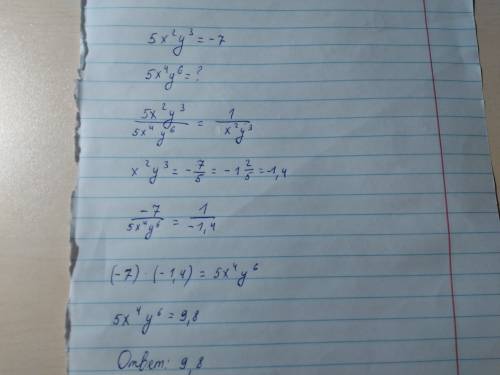 5x²y³=-7
5x⁴y⁶=?
5x²y³/5x⁴y⁶ = 1/x²y³
x²y³ = -7/5 = -1 2/5 = -1,4
-7/5x⁴y⁶ = 1/-1,4
(-7)·(-1,4) = 5x⁴y⁶
5x⁴y⁶ = 9,8
Ответ: 9,8